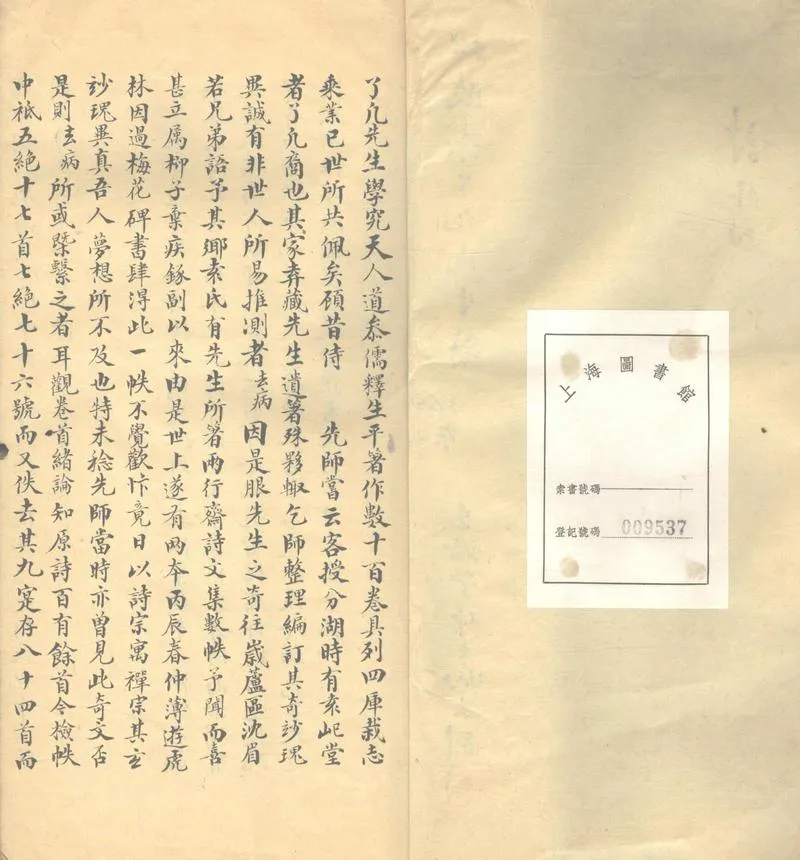 上海圖書館
索書號碼
登記號碼 009537
了凡先生學究天人道叅儒釋生平著作數十百卷具列四庫栽志
乘業已世所共佩矣顧昔侍 先師嘗云客授分湖時有袁屺堂
者了凡裔也其家弆藏先生遺著殊夥輙乞師整理編訂其奇玅瑰
異誠有非世人所易推測者去病因是服先生之奇往嵗蘆區沈眉
若兄弟語予其鄉袁氏有先生所著兩行齋詩文集數帙予聞而喜
甚立属柳子棄疾録副以來由是世上遂有两本丙辰春仲薄遊虎
林因過梅花碑書肆淂此一帙不覺歡忭竟日以詩宗寓禪宗其玄
玅瑰異真吾人夢想所不及也特未稔先師當時亦曾見此奇文否
是則去病所或繫之者耳觀卷首緒論知原詩百有餘首今檢帙
中衹五絶十七首七絶七十六號而又佚去其九寔存八十四首而